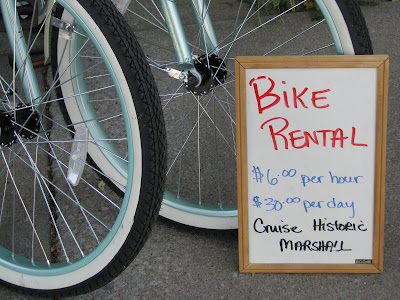 BIKE
RENTAL
$6.00 per hour
$30.00 per day
Cruise Historic
MARSHALL